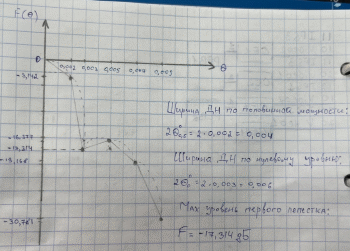 F(θ)
0
0,002 0,003 0,005 0,007 0,009
θ
-3,142
-16,577
-17,314
-19,166
-30,761
Ширина ДН по половинной мощности:
= 2·0,002 = 0,004
Ширина ДН по нулевому уровню:
= 2·0,003 = 0,006
Max уровень первого лепестка:
F = -17,314 дБ